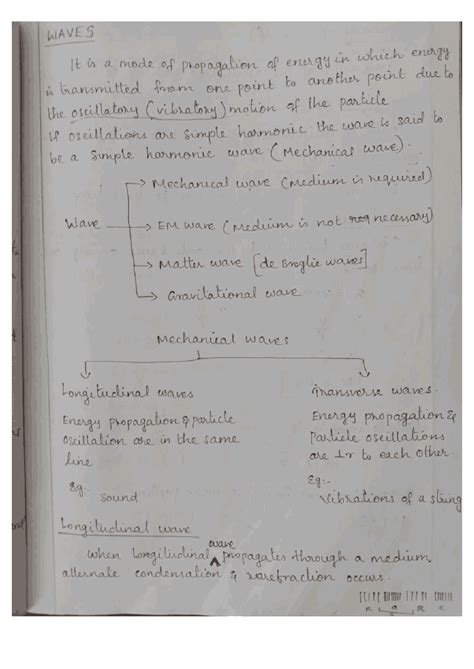 WAVES
It is a mode of propagation of energy in which energy
is transmitted from one point to another point due to
the oscillatory (vibratory) motion of the particle
if oscillations are simple harmonic the wave is said to
be a simple harmonic wave (Mechanical wave).
→ Mechanical wave (Medium is required)
Wave → EM wave (Medium is not necessary)
→ Matter wave [de Broglie waves]
→ Gravitational wave
Mechanical waves
Longitudinal waves Transverse waves.
Energy propagation & particle Energy propagation &
oscillation are in the same Particle oscillations
line are ⊥r to each other.
Eg. Eg:
Sound Vibrations of a string
Longitudinal wave
When longitudinal wave propagates through a medium,
alternate condensation & rarefraction occurs.
R C